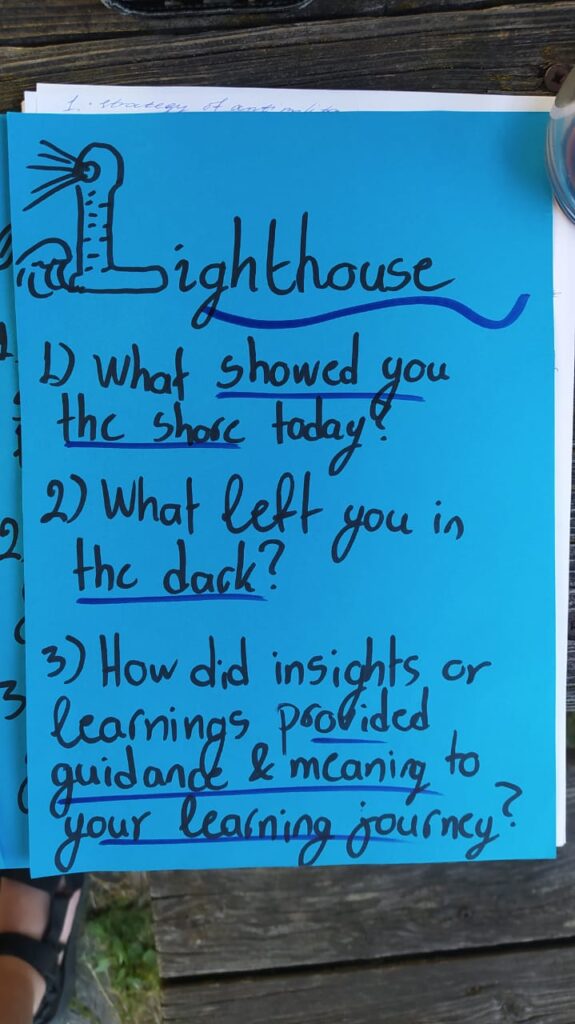 1. strategy of
Lighthouse
1) What showed you
the shore today?
2) What left you in
the dark?
3) How did insights or
learnings provided
guidance & meaning to
your learning journey?
1
2
3